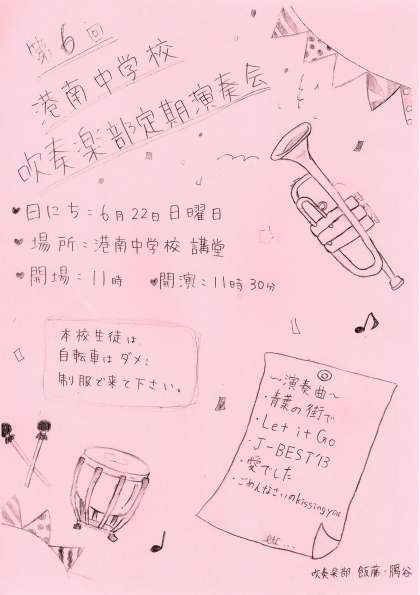 第6回
港南中学校
吹奏楽部定期演奏会
♥日にち：6月22日日曜日
♥場所：港南中学校 講堂
♥開場：11時 ♥開演：11時30分
本校生徒は、
自転車はダメ;
制服で来て下さい。
～演奏曲～
・青葉の街で
・Let it Go
・J-BEST'13
・愛でした
・ごめんなさいのkissing you
etc...
吹奏楽部 飯藤・